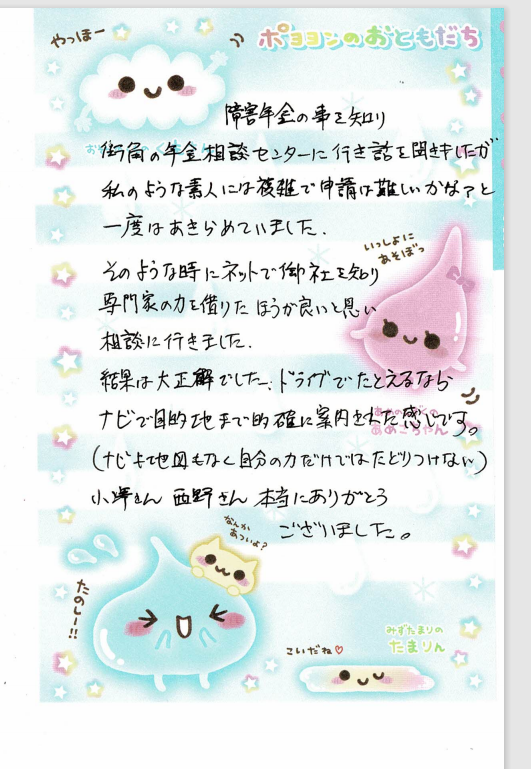 やっほー
ポヨヨンのおともだち
障害年金の事を知り
街角の年金相談センターに行き話を聞きましたが
私のような素人には複雑で申請は難しいかな?と
一度はあきらめていました.
いっしょに
あそぼっ
そのような時にネットで御社を知り
専門家の力を借りた ほうが良いと思い
相談に行きました.
結果は大正解でした、ドライブでたとえるなら
ナビで目的地まで的確に案内された感じです。
あめこちゃん
(ナビも地図もなく自分の力だけではたどりつけない)
小澤さん 西野さん 本当にありがとう
ございました。
なんか
あついよ?
たのしー!!
みずたまりの
たまりん
こいだね♡